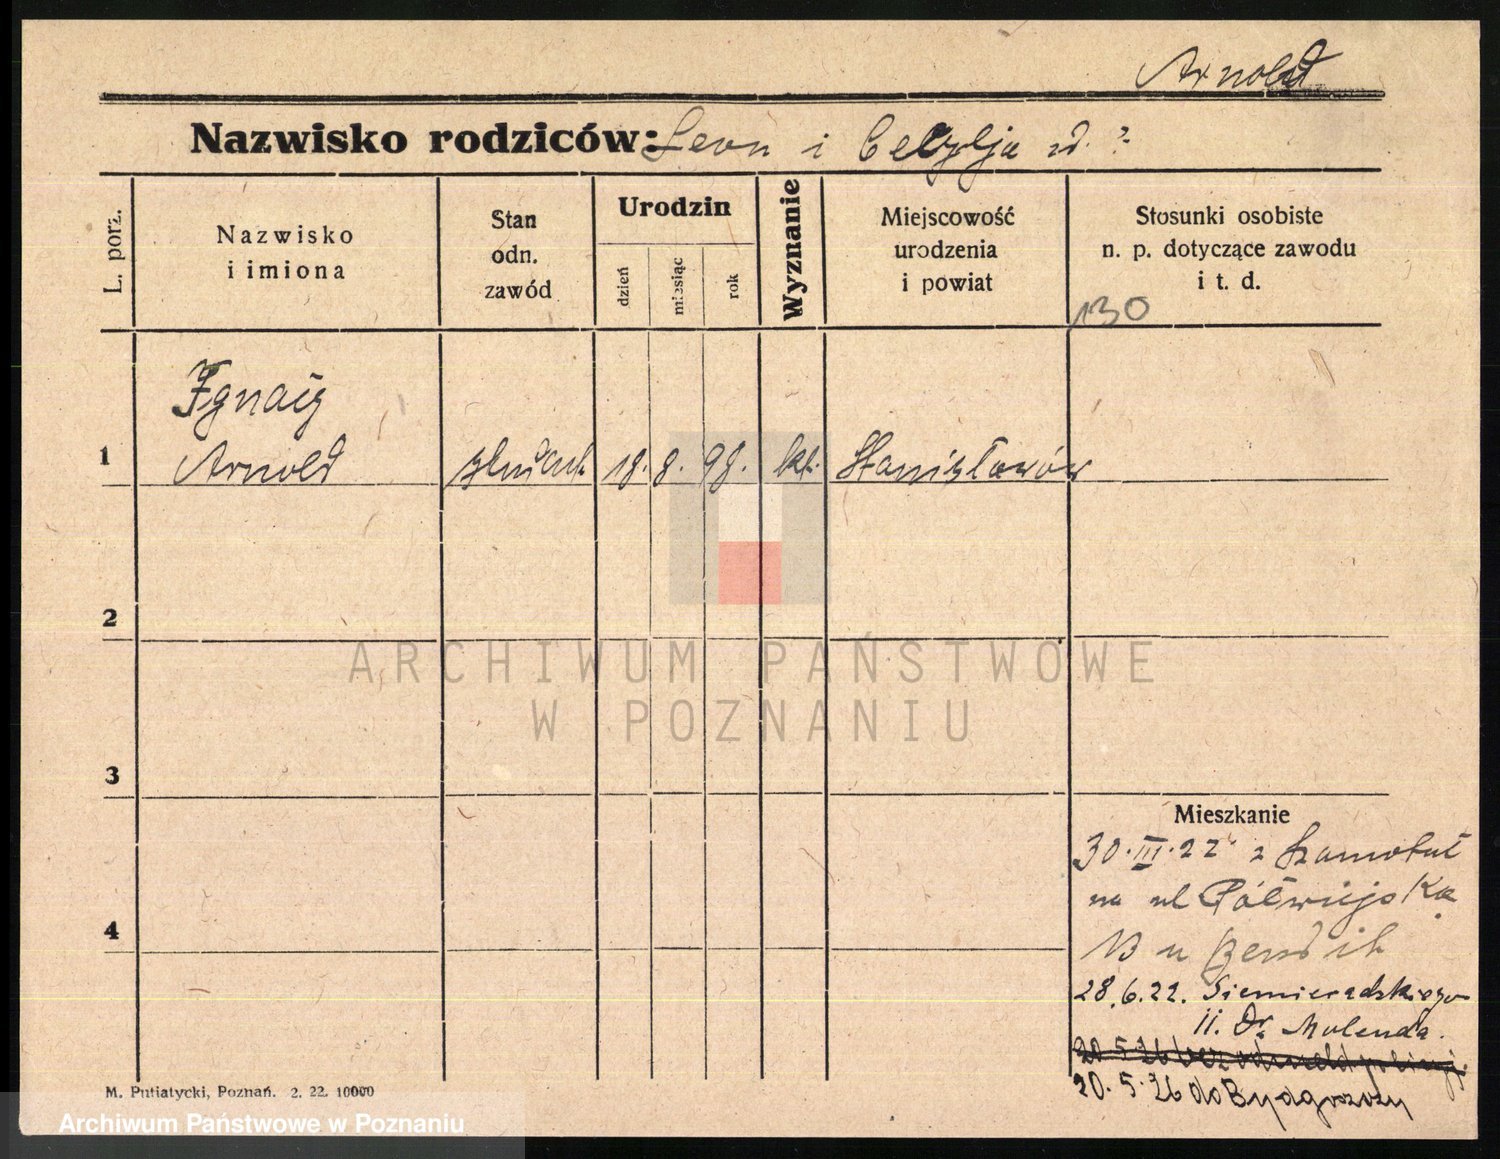 Arnold
Nazwisko rodziców: Leon i Celylja ud. ?
L. porz.
Nazwisko
i imiona
Stan
odn.
zawód
Urodzin
dzień
miesiąc
rok
Wyznanie
Miejscowość
urodzenia
i powiat
Stosunki osobiste
n. p. dotyczące zawodu
i t. d.
130
Ignacy
1 Arnold 18. 8. 98. kt. Stanisławów
2
3
Mieszkanie
30.III.22 z Szamotuł
na ul Półwiejska
4
13 u
28.6.22. Siemieradzkiego
11. Dr. Molenda.
20.5.26 do Bydgoszczy
M. Putiatycki, Poznań. 2. 22. 10000
ARCHIWUM PAŃSTWOWE
W POZNANIU
Archiwum Państwowe w Poznaniu